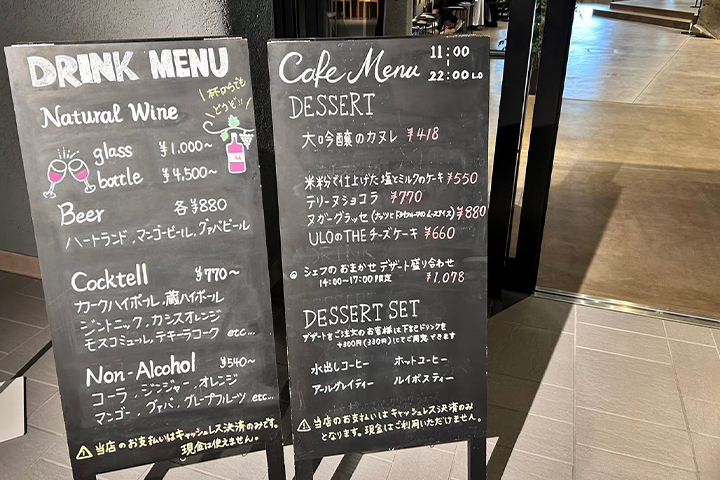 DRINK MENU
Natural Wine
1杯からでも
どうぞ!!
glass ¥1,000~
bottle ¥4,500~
Beer 各¥880
ハートランド,マンゴービール,グァバビール
Cocktell ¥770~
カークハイボール,蔵ハイボール
ジントニック,カシスオレンジ
モスコミュール,テキーラコーク etc...
Non-Alcohol ¥540~
コーラ,ジンジャー,オレンジ
マンゴー,グァバ,グレープフルーツ etc...
⚠当店のお支払いはキャッシュレス決済のみです。
現金は使えません。
Cafe Menu 11:00
|
22:00 LO
DESSERT
大吟醸のカヌレ ¥418
米粉で仕上げた塩とミルクのケーキ ¥550
テリーヌショコラ ¥770
ヌガーグラッセ ¥880
ULOのTHEチーズケーキ ¥660
シェフのおまかせデザート盛り合わせ
14:00~17:00限定 ¥1,078
DESSERT SET
デザートをご注文のお客様は下記ドリンクを
+300円(330円)にてご用意できます
水出しコーヒー ホットコーヒー
アールグレイティー ルイボスティー
⚠当店のお支払いはキャッシュレス決済のみ
となります。現金はご利用いただけません。